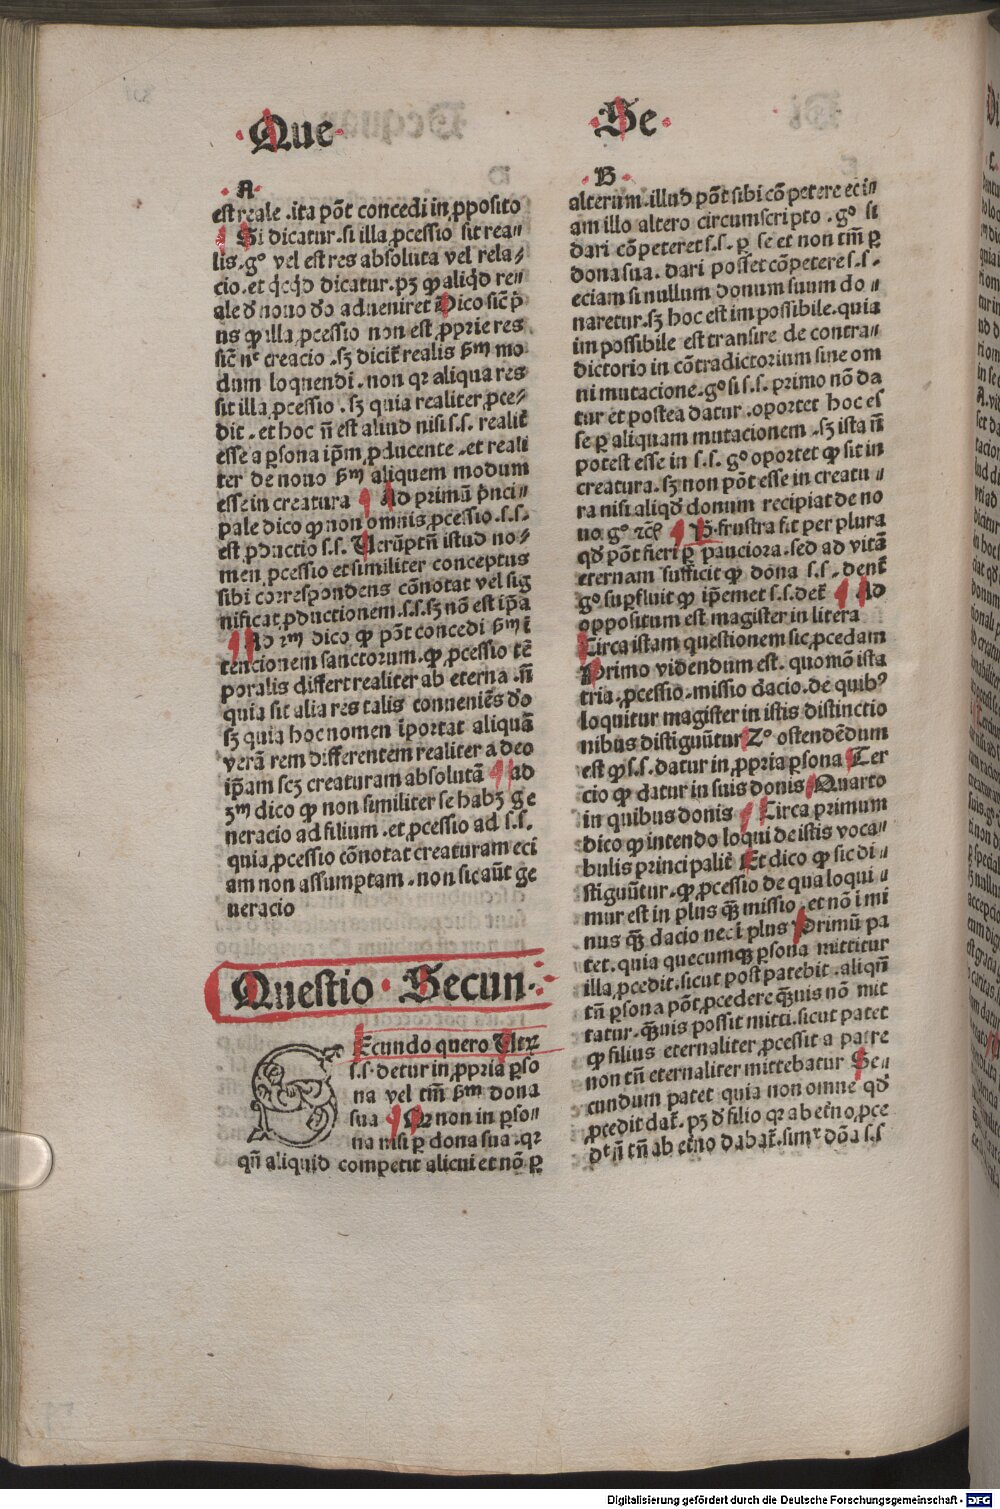 Que
Se
A
est reale .ita põt concedi in ꝓposito
Si dicatur .si illa ꝓcessio sit rea-
lis .gº vel est res absoluta vel rela-
cio .et q̇cq̇d dicatur .pꝫ ꝙ aliqd̕ re-
ale d̕ nouo d̕o adueniret Dico sic̄ p̄
us ꝙ illa ꝓcessio non est ꝓprie res
sic̄ nᶜ creacio .sꝫ dicit̃ realis ẜm mo
dum loquendi .non qꝛ aliqua res
sit illa ꝓcessio .sꝫ quia realiter ꝓce-
dit .et hoc n̄ est aliud nisi s.s. realit̃
esse a ꝑsona ip̄m ꝓducente .et reali
ter de nouo ẜm aliquem modum
esse in creatura Ad primū p̄nci-
pale dico ꝙ non omnis ꝓcessio .s.s.
est ꝓductio s.s. Verūptn̄ istud no-
men ꝓcessio et similiter conceptus
sibi correspondens cōnotat vel sig
nificat ꝓductionem .s.s. sꝫ nō est ip̄a
Ad 2m dico ꝙ põt concedi ẜm ī
tencionem sanctorum .ꝙ ꝓcessio tē
poralis differt realiter ab eterna .n̄
quia sit alia res talis conueniēs d̕o
sꝫ quia hoc nomen īportat aliquā
verā rem differentem realiter a deo
ip̄am scꝫ creaturam absolutā Ad
3m dico ꝙ non similiter se habꝫ ge
neracio ad filium .et ꝓcessio ad s.s.
quia ꝓcessio cōnotat creaturam eci
am non assumptam .non sic aūt ge
neracio
Questio Secun.
Secundo quero Vtꝝ
s.s. detur in ꝓpria ꝑso
na vel tm̄ ẜm dona
sua Qꝛ non in ꝑso-
na nisi ꝑ dona sua .qꝛ
qn̄ aliquid competit alicui et nō ꝑ
B
alterum .illud põt sibi cōpetere eci-
am illo altero circumscripto .gº si
dari cōpeteret s.s. ꝑ se et non tm̄ ꝑ
dona sua .dari posset cōpetere s.s.
eciam si nullum donum suum do-
naretur .sꝫ hoc est impossibile .quia
impossibile est transire de contra-
dictorio in cōtradictorium sine om
ni mutacione .gº si s.s. primo nō da
tur et postea datur .oportet hoc es
se ꝑ aliquam mutacionem .sꝫ ista n̄
potest esse in s.s. gº oportet ꝙ sit in
creatura .sꝫ non põt esse in creatu-
ra nisi aliqd̕ donum recipiat de no
uo gº ꝛcꝭ P. frustra fit per plura
qd̕ põt fieri ꝑ pauciora .sed ad vitā
eternam sufficit ꝙ dona s.s. dent̃
gº suꝑfluit ꝙ ip̄emet s.s. det̃ Ad
oppositum est magister in litera
Circa istam questionem sic ꝓcedam
Primo videndum est .quomō ista
tria .ꝓcessio .missio dacio .de quibꝰ
loquitur magister in istis distinctio
nibus distiguūtur 2º ostendēdum
est ꝙ s.s. datur in ꝓpria ꝑsona Ter
cio ꝙ datur in suis donis Quarto
in quibus donis Circa primum
dico ꝙ intendo loqui de istis voca-
bulis principalit̃ Et dico ꝙ sic di-
stiguūtur .ꝙ ꝓcessio de qua loqui-
mur est in plus qꝫ missio .et nō ī mi
nus qꝫ dacio nec ī plus Primū pa
tet .quia quecumqꝫ ꝑsona mittitur
illa ꝓcedit .sicut post patebit .aliqn̄
tn̄ ꝑsona põt ꝓcedere qꝫuis nō mit
tatur .qꝫuis possit mitti .sicut patet
ꝙ filius eternaliter ꝓcessit a patre
non tn̄ eternaliter mittebatur Se-
cundum patet quia non omne qd̕
ꝓcedit dat̃. pꝫ d̕ filio qꝛ ab et̃no ꝓce
dᶜ n̄ tn̄ ab et̃no dabat̃. simʳ dōa s.s
Digitalisierung gefördert durch die Deutsche Forschungsgemeinschaft - DFG